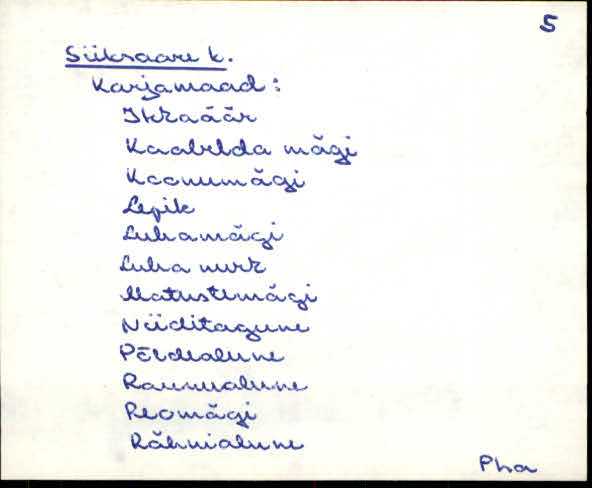 5
Siiksaare k.
Karjamaad:
Ikraäär
mägi
Koonumägi
Lepik
Luhamägi
Luha nurk
Matustemägi
Niiditagune
Põldealune
Raunualune
Reomägi
Rähnialune
Pha